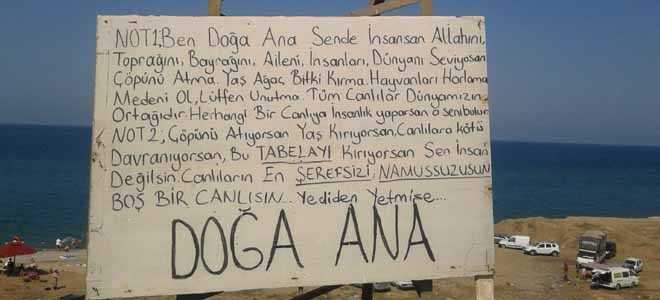 NOT1;Ben Doğa Ana Sende İnsansan Allahını,
Toprağını, Bayrağını, Aileni, İnsanları, Dünyanı Seviyosan
Çöpünü Atma. Yaş Ağaç, Bitki Kırma. Hayvanları Horlama
Medeni Ol, Lütfen Unutma. Tüm Canlılar Dünyamızın
Ortağıdır. Herhangi Bir Canlıya İnsanlık yaparsan o seni bulur
NOT2; Çöpünü Atıyorsan Yaş Kırıyorsan, Canlılara kötü
Davranıyorsan, Bu TABELAYI Kırıyorsan Sen İnsan
Değilsin. Canlıların En ŞEREFSİZİ, NAMUSSUZUSUN
BOŞ BİR CANLISIN.. Yediden Yetmişe...
DOĞA ANA